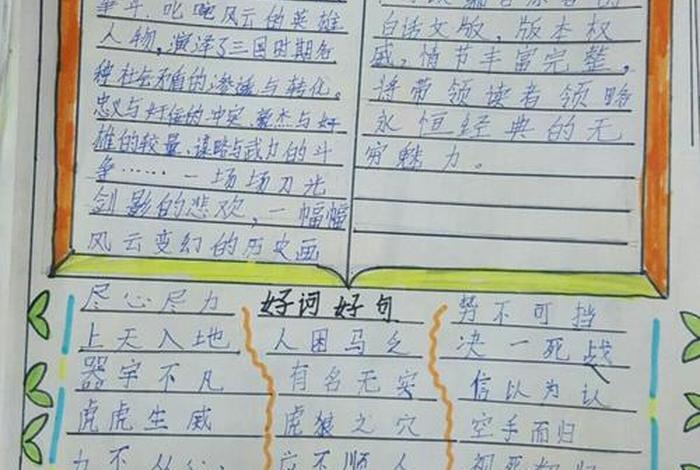 事年、叱咤风云的英雄
人物,演泽了三国时期各
种社会矛盾的渗透与转化。
忠义与奸佞的冲突、豪杰与奸
雄的较量、谋略与武力的斗
争……一场场刀光
剑影的悲欢,一幅幅
风云变幻的历史画
白话文版,版本权
威,情节丰富完整,
将带领读者领略
永恒经典的无
穷魅力。
好词好句
尽心尽力
上天入地
器宇不凡
虎虎生威
人困马乏
有名无实
虎狼之穴
势不可挡
决一死战
信以为认
空手而归